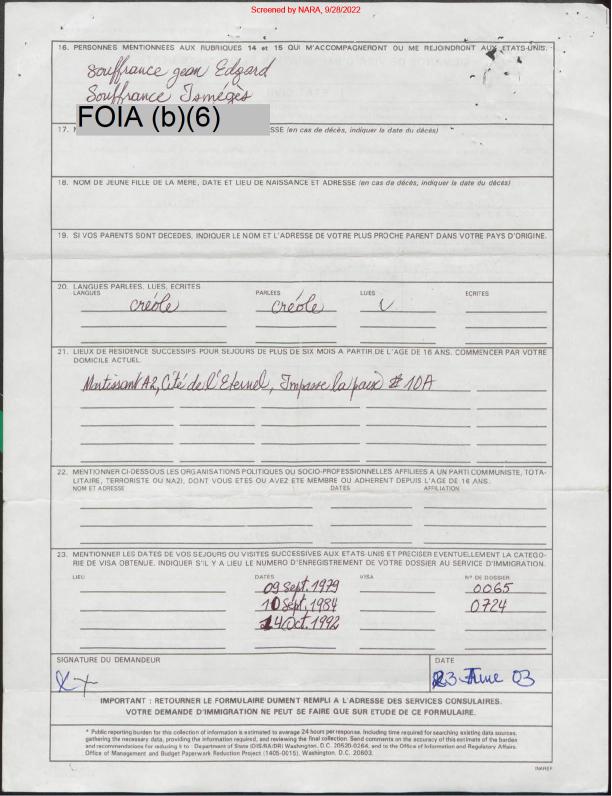 Screened by NARA, 9/28/2022
16. PERSONNES MENTIONNEES AUX RUBRIQUES 14 et 15 QUI M'ACCOMPAGNERONT OU ME REJOINDRONT AUX ETATS-UNIS.
Souffrance jean Edgard
Souffrance Ismégès
FOIA (b)(6)
17. SSE (en cas de décès, indiquer la date du décès)
18. NOM DE JEUNE FILLE DE LA MERE, DATE ET LIEU DE NAISSANCE ET ADRESSE (en cas de décès, indiquer la date du décès)
19. SI VOS PARENTS SONT DECEDES, INDIQUER LE NOM ET L'ADRESSE DE VOTRE PLUS PROCHE PARENT DANS VOTRE PAYS D'ORIGINE.
20. LANGUES PARLEES, LUES, ECRITES
LANGUES PARLEES LUES ECRITES
créole créole
21. LIEUX DE RESIDENCE SUCCESSIFS POUR SEJOURS DE PLUS DE SIX MOIS A PARTIR DE L'AGE DE 16 ANS. COMMENCER PAR VOTRE
DOMICILE ACTUEL.
Martissant A2, Cité de l'Eternel, Impasse la paix # 10A
22. MENTIONNER CI-DESSOUS LES ORGANISATIONS POLITIQUES OU SOCIO-PROFESSIONNELLES AFFILIEES A UN PARTI COMMUNISTE, TOTA-
LITAIRE, TERRORISTE OU NAZI, DONT VOUS ETES OU AVEZ ETE MEMBRE OU ADHERENT DEPUIS L'AGE DE 16 ANS.
NOM ET ADRESSE DATES AFFILIATION
23. MENTIONNER LES DATES DE VOS SEJOURS OU VISITES SUCCESSIVES AUX ETATS-UNIS ET PRECISER EVENTUELLEMENT LA CATEGO-
RIE DE VISA OBTENUE. INDIQUER S'IL Y A LIEU LE NUMERO D'ENREGISTREMENT DE VOTRE DOSSIER AU SERVICE D'IMMIGRATION.
LIEU DATES VISA N° DE DOSSIER
09 Sept. 1979 0065
10 Sept. 1984 0724
14 Oct. 1992
SIGNATURE DU DEMANDEUR DATE
23 June 03
IMPORTANT : RETOURNER LE FORMULAIRE DUMENT REMPLI A L'ADRESSE DES SERVICES CONSULAIRES.
VOTRE DEMANDE D'IMMIGRATION NE PEUT SE FAIRE QUE SUR ETUDE DE CE FORMULAIRE.
* Public reporting burden for this collection of information is estimated to average 24 hours per response, including time required for searching existing data sources,
gathering the necessary data, providing the information required, and reviewing the final collection. Send comments on the accuracy of this estimate of the burden
and recommendations for reducing it to : Department of State (OIS/RA/DR) Washington, D.C. 20520-0264, and to the Office of Information and Regulatory Affairs,
Office of Management and Budget Paperwork Reduction Project (1405-0015), Washington, D.C. 20503.